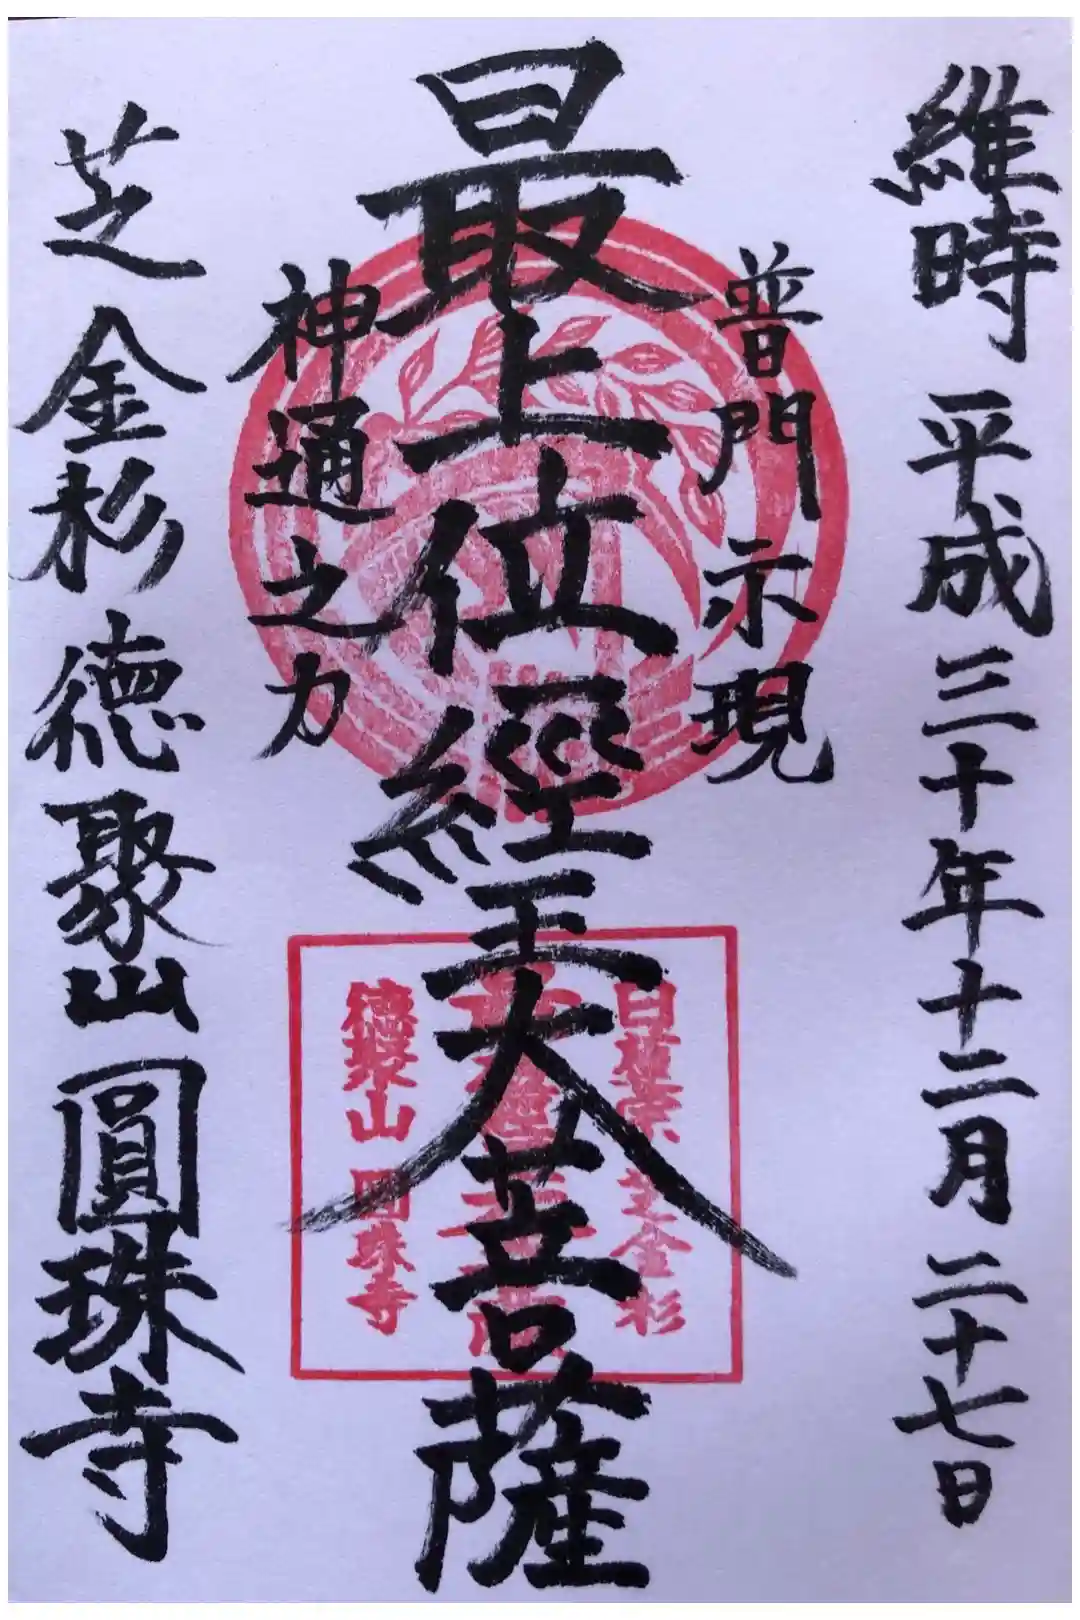 維時平成三十年十二月二十七日
普門示現
最上位經王大菩薩
神通之力
芝金杉徳聚山圓珠寺
日蓮宗 芝金杉
德聚山 圓珠寺